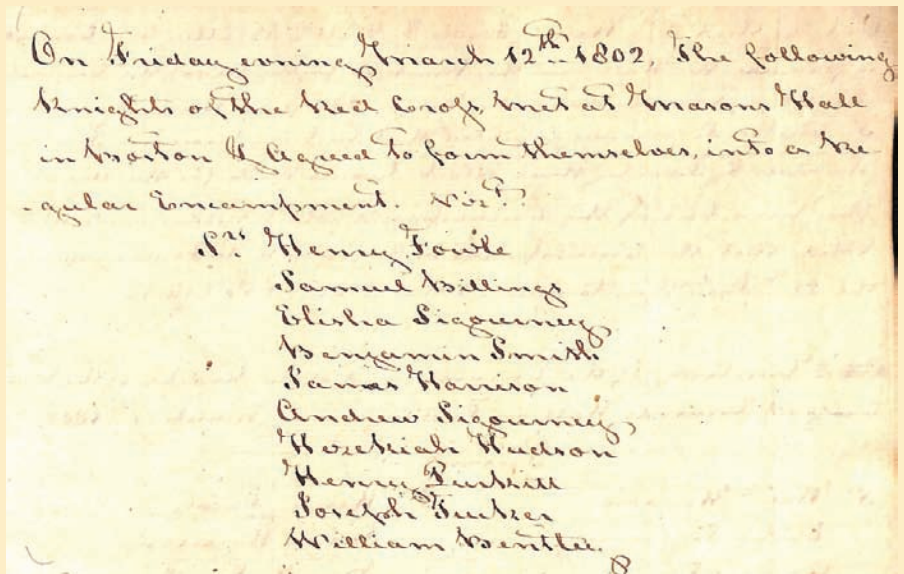 On Friday evning March 12th 1802, The following
Knights of the Red Cross, met at Masons Hall
in Boston & Agreed to form themselves, into a Re
-gular Encampment. Vizt.
Srs Henry Fowle
Samuel Billings
Elisha Sigourney
Benjamin Smith
James Harrison
Andrew Sigourney,
Hezekiah Hudson
Henry Purkitt
Joseph Tucker
William Bentley.